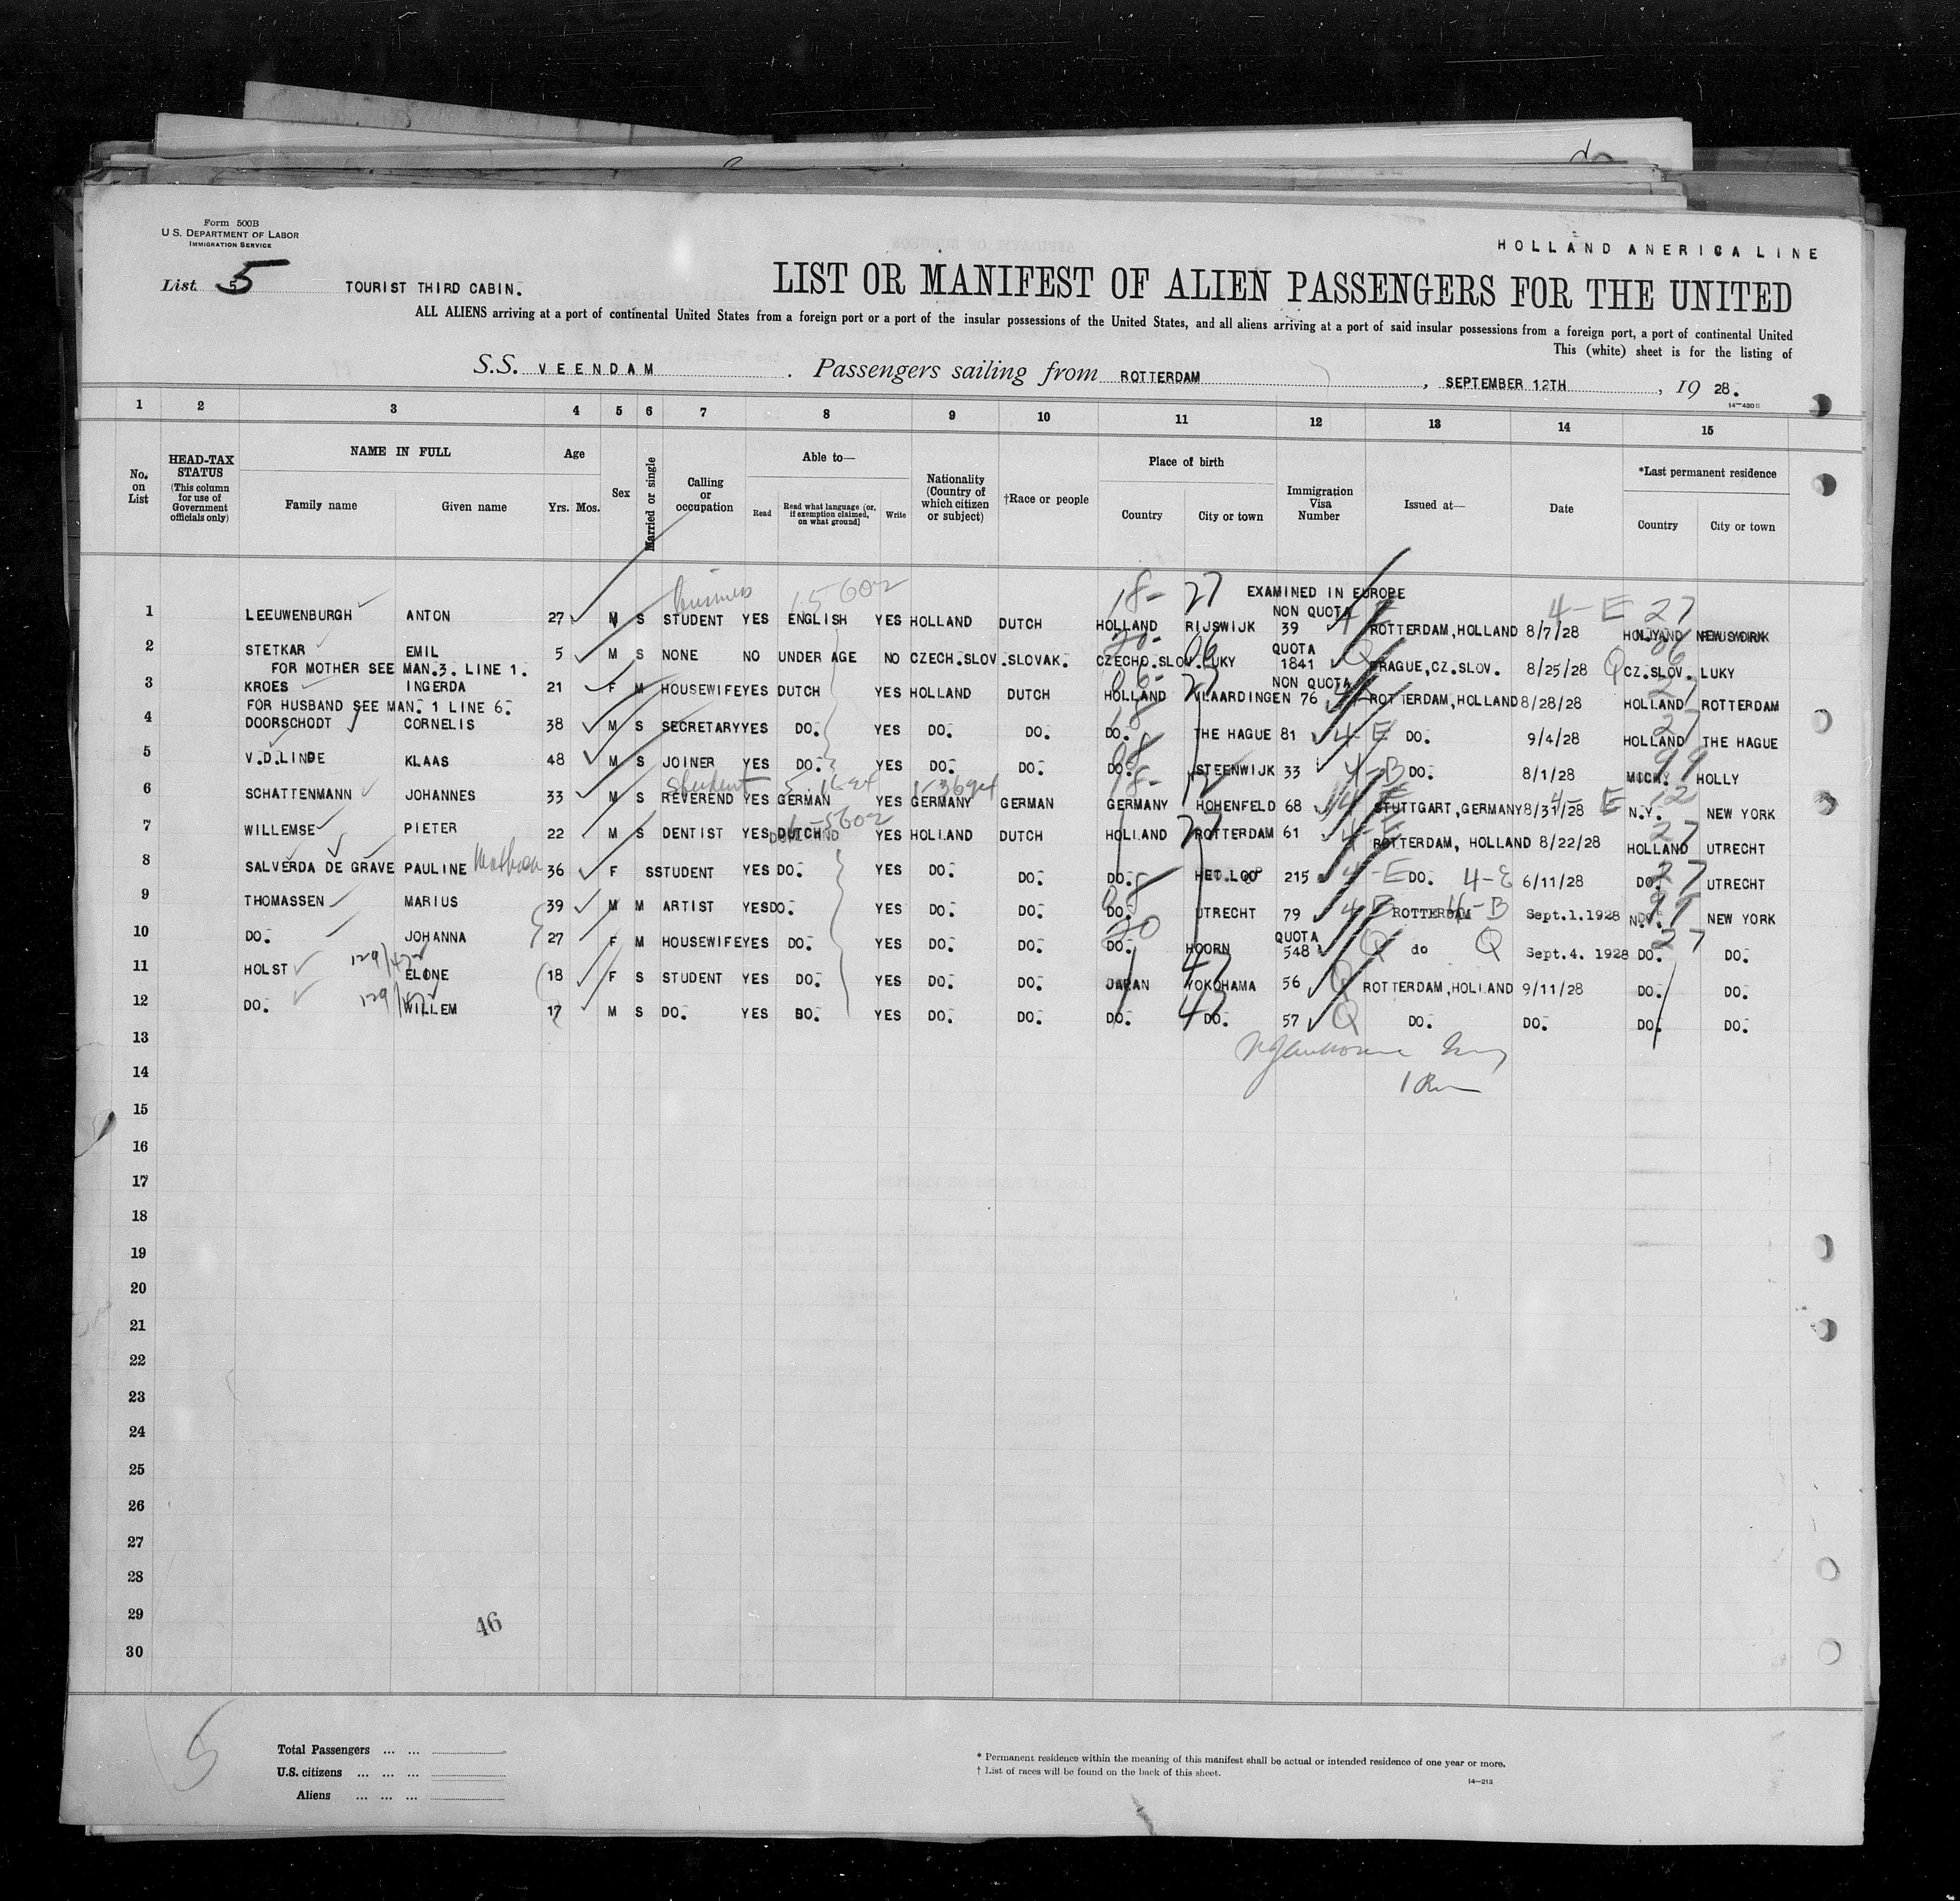 Form 500B
U.S. DEPARTMENT OF LABOR
IMMIGRATION SERVICE
HOLLAND ANERICA LINE
List 5 5 TOURIST THIRD CABIN.
LIST OR MANIFEST OF ALIEN PASSENGERS FOR THE UNITED
ALL ALIENS arriving at a port of continental United States from a foreign port or a port of the insular possessions of the United States, and all aliens arriving at a port of said insular possessions from a foreign port, a port of continental United
This (white) sheet is for the listing of
S.S. VEENDAM . Passengers sailing from ROTTERDAM , SEPTEMBER 12TH , 19 28.
14-430B
1 2 3 4 5 6 7 8 9 10 11 12 13 14 15
No. on List
HEAD-TAX STATUS (This column for use of Government officials only)
NAME IN FULL Family name Given name
Age Yrs. Mos.
Sex
Married or single
Calling or occupation
Able to— Read Read what language [or, if exemption claimed, on what ground] Write
Nationality (Country of which citizen or subject)
†Race or people
Place of birth Country City or town
Immigration Visa Number
Issued at—
Date
*Last permanent residence Country City or town
business 15602 18- 27 EXAMINED IN EUROPE
NON QUOTA 4-E 27
1 LEEUWENBURGH ANTON 27 M S STUDENT YES ENGLISH YES HOLLAND DUTCH HOLLAND RIJSWIJK 39 ROTTERDAM,HOLLAND 8/7/28
QUOTA
2 STETKAR EMIL 5 M S NONE NO UNDER AGE NO CZECH.SLOV. SLOVAK. CZECHO.SLOV. LUKY 1841 Q PRAGUE,CZ.SLOV. 8/25/28 Q CZ.SLOV. LUKY
FOR MOTHER SEE MAN.3. LINE 1.
NON QUOTA
3 KROES INGERDA 21 F M HOUSEWIFE YES DUTCH YES HOLLAND DUTCH HOLLAND VLAARDINGEN 76 ROTTERDAM,HOLLAND 8/28/28 HOLLAND ROTTERDAM
FOR HUSBAND SEE MAN. 1 LINE 6.
4 DOORSCHODT CORNELIS 38 M S SECRETARY YES DO. YES DO. DO. DO. THE HAGUE 81 4-E DO. 9/4/28 HOLLAND THE HAGUE
5 V.D.LINDE KLAAS 48 M S JOINER YES DO. YES DO. DO. DO. STEENWIJK 33 4-B DO. 8/1/28 MICH. HOLLY
student
6 SCHATTENMANN JOHANNES 33 M S REVEREND YES GERMAN YES GERMANY GERMAN GERMANY HOHENFELD 68 STUTTGART,GERMANY 8/31/28 E N.Y. NEW YORK
7 WILLEMSE PIETER 22 M S DENTIST YES DUTCH YES HOLLAND DUTCH HOLLAND ROTTERDAM 61 4-E ROTTERDAM, HOLLAND 8/22/28 HOLLAND UTRECHT
8 SALVERDA DE GRAVE PAULINE 36 F S STUDENT YES DO. YES DO. DO. DO. HET LOO 215 4-E DO. 4-E 6/11/28 DO. UTRECHT
9 THOMASSEN MARIUS 39 M M ARTIST YES DO. YES DO. DO. DO. UTRECHT 79 4-B ROTTERDAM 4-B Sept.1.1928 NEW YORK
QUOTA
10 DO. JOHANNA 27 F M HOUSEWIFE YES DO. YES DO. DO. DO. HOORN 548 Q do Q Sept.4. 1928 DO. DO.
11 HOLST ELONE 18 F S STUDENT YES DO. YES DO. DO. JAPAN YOKOHAMA 56 Q ROTTERDAM,HOLLAND 9/11/28 DO. DO.
12 DO. WILLEM 17 M S DO. YES DO. YES DO. DO. DO. DO. 57 Q DO. DO. DO. DO.
13
14
15
16
17
18
19
20
21
22
23
24
25
26
27
28
29
30
46
5
Total Passengers ... ...
U.S. citizens ... ... ...
Aliens ... ... ...
* Permanent residence within the meaning of this manifest shall be actual or intended residence of one year or more.
† List of races will be found on the back of this sheet.
14-213